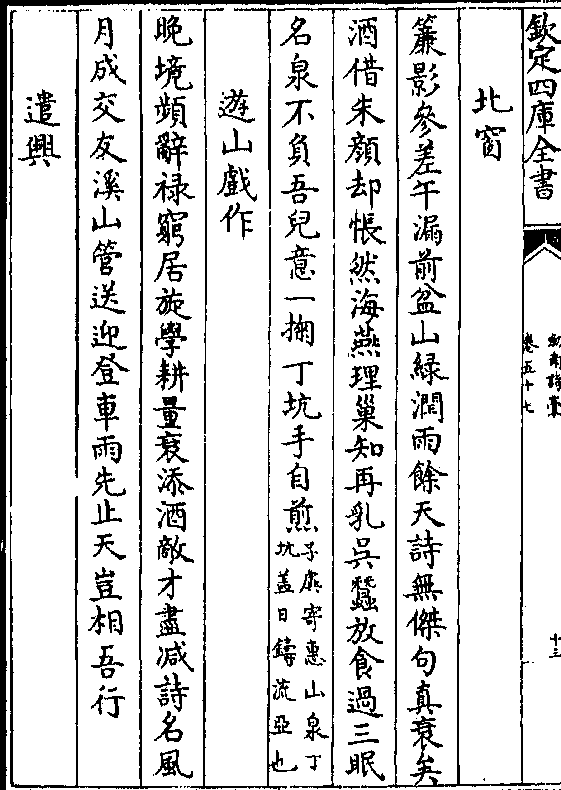 欽定四庫全書
劍南詩稾
卷五十七
十三
北窗
簾影參差午漏前盆山綠潤雨餘天詩無傑句真衰矣
酒借朱顏却悵然海燕理巢知再乳吳蠶放食過三眠
名泉不負吾兒意一掬丁坑手自煎
子虡寄惠山泉丁
坑蓋日鑄流亞也
遊山戲作
晚境頻辭祿窮居旋學耕量衰添酒敵才盡減詩名風
月成交友溪山管送迎登車雨先止天豈相吾行
遣興